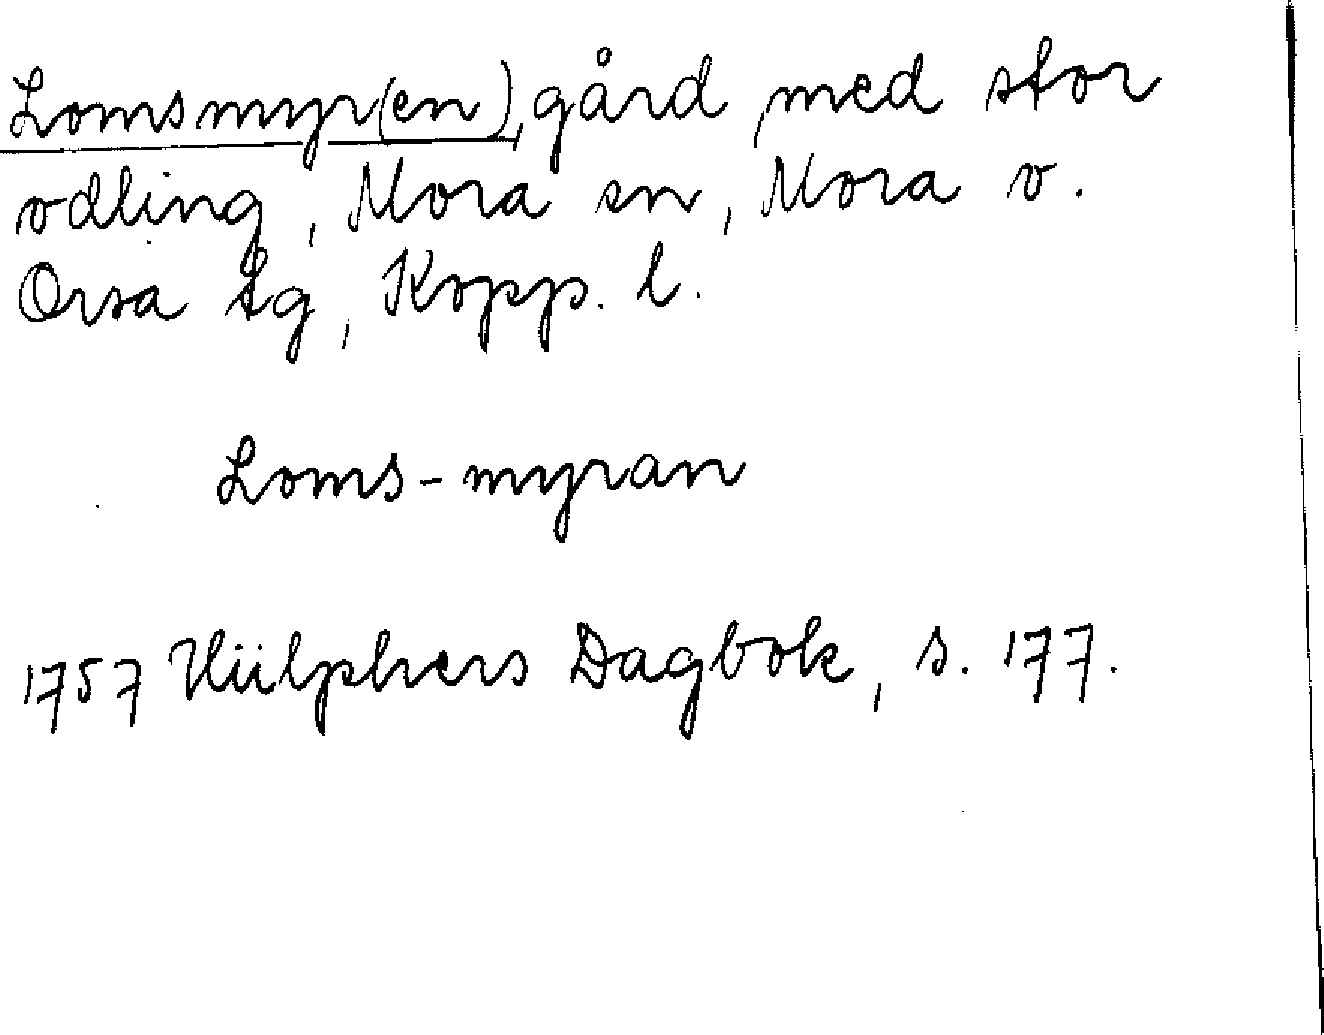 Lomsmyr(en), gård med stor
odling, Mora sn, Mora o.
Orsa tg, Kopp. l.
Loms-myran
1757 Hülphers Dagbok, s. 177.